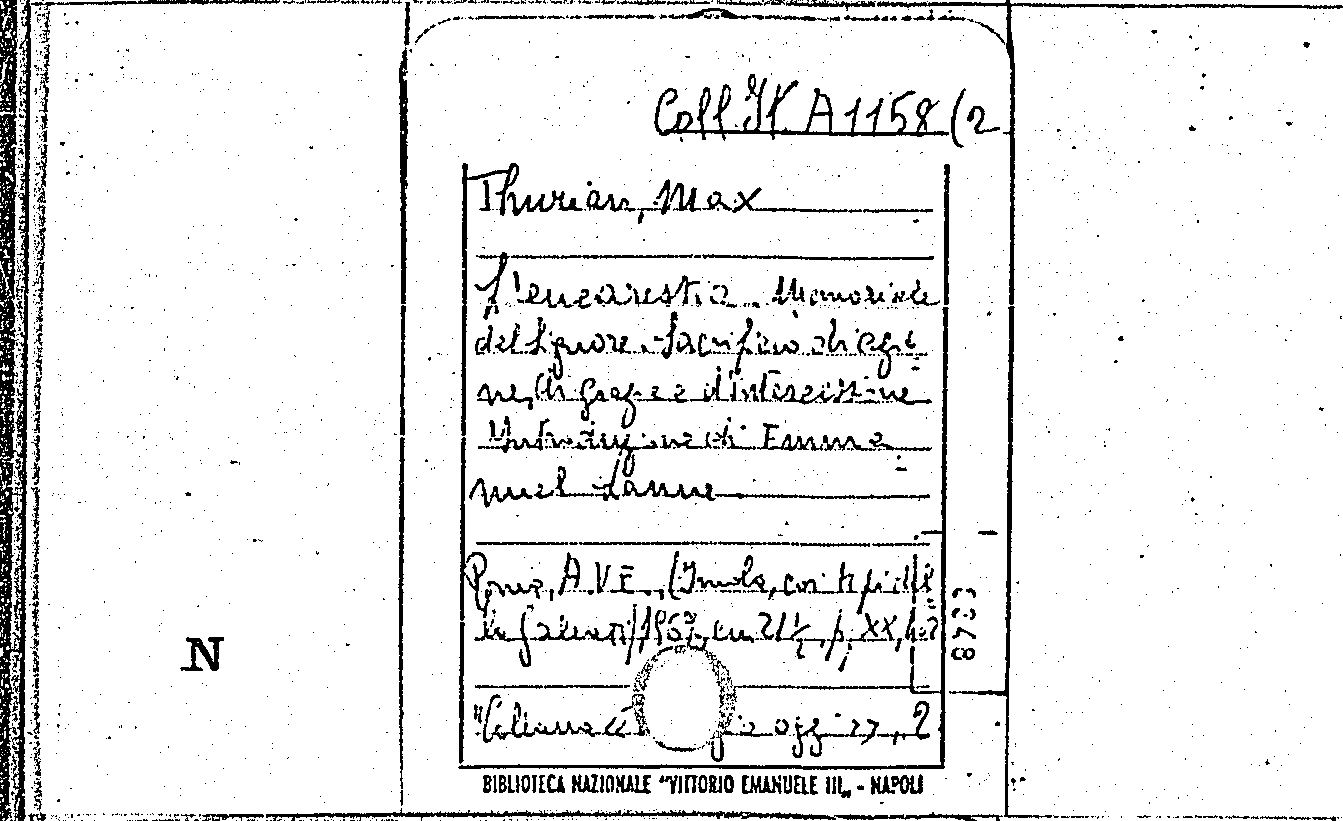 Coll. It. A 1158 (2
Thurian, Max
L'eucarestia. Memoriale
del Signore. Sacrificio di azio
ne di grazie e d'intercessione
Introduzione di Emma
nuel Lanne
Roma, A.V.E., (Imola, coi tipi del
la Galeati) 1967, cm. 21½, p. XX,
8723
"Collana oggi 2
N
BIBLIOTECA NAZIONALE "VITTORIO EMANUELE III„ - NAPOLI